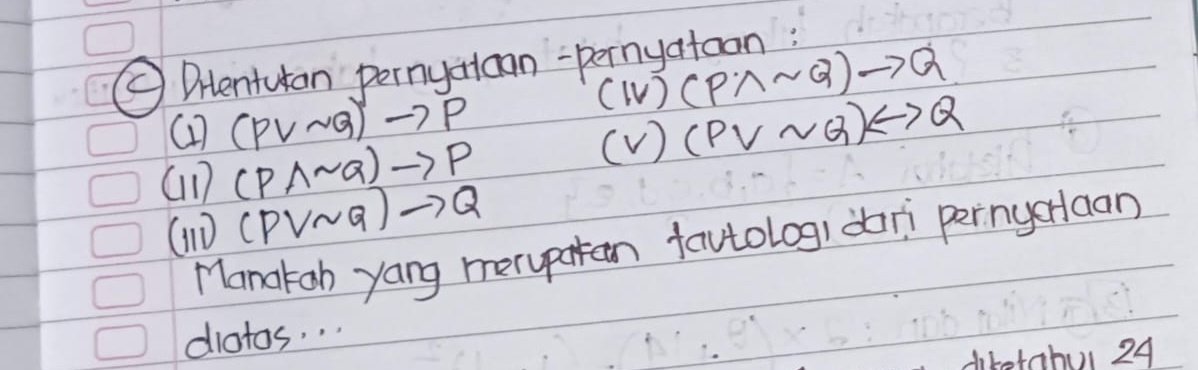 (C) Ditentukan pernyataan-pernyataan :
(I) (P∨~Q) → P (IV) (P∧~Q) → Q
(II) (P∧~Q) → P (V) (P∨~Q) ↔ Q
(III) (P∨~Q) → Q
Manakah yang merupakan tautologi dari pernyataan
diatas...
diketahui 24